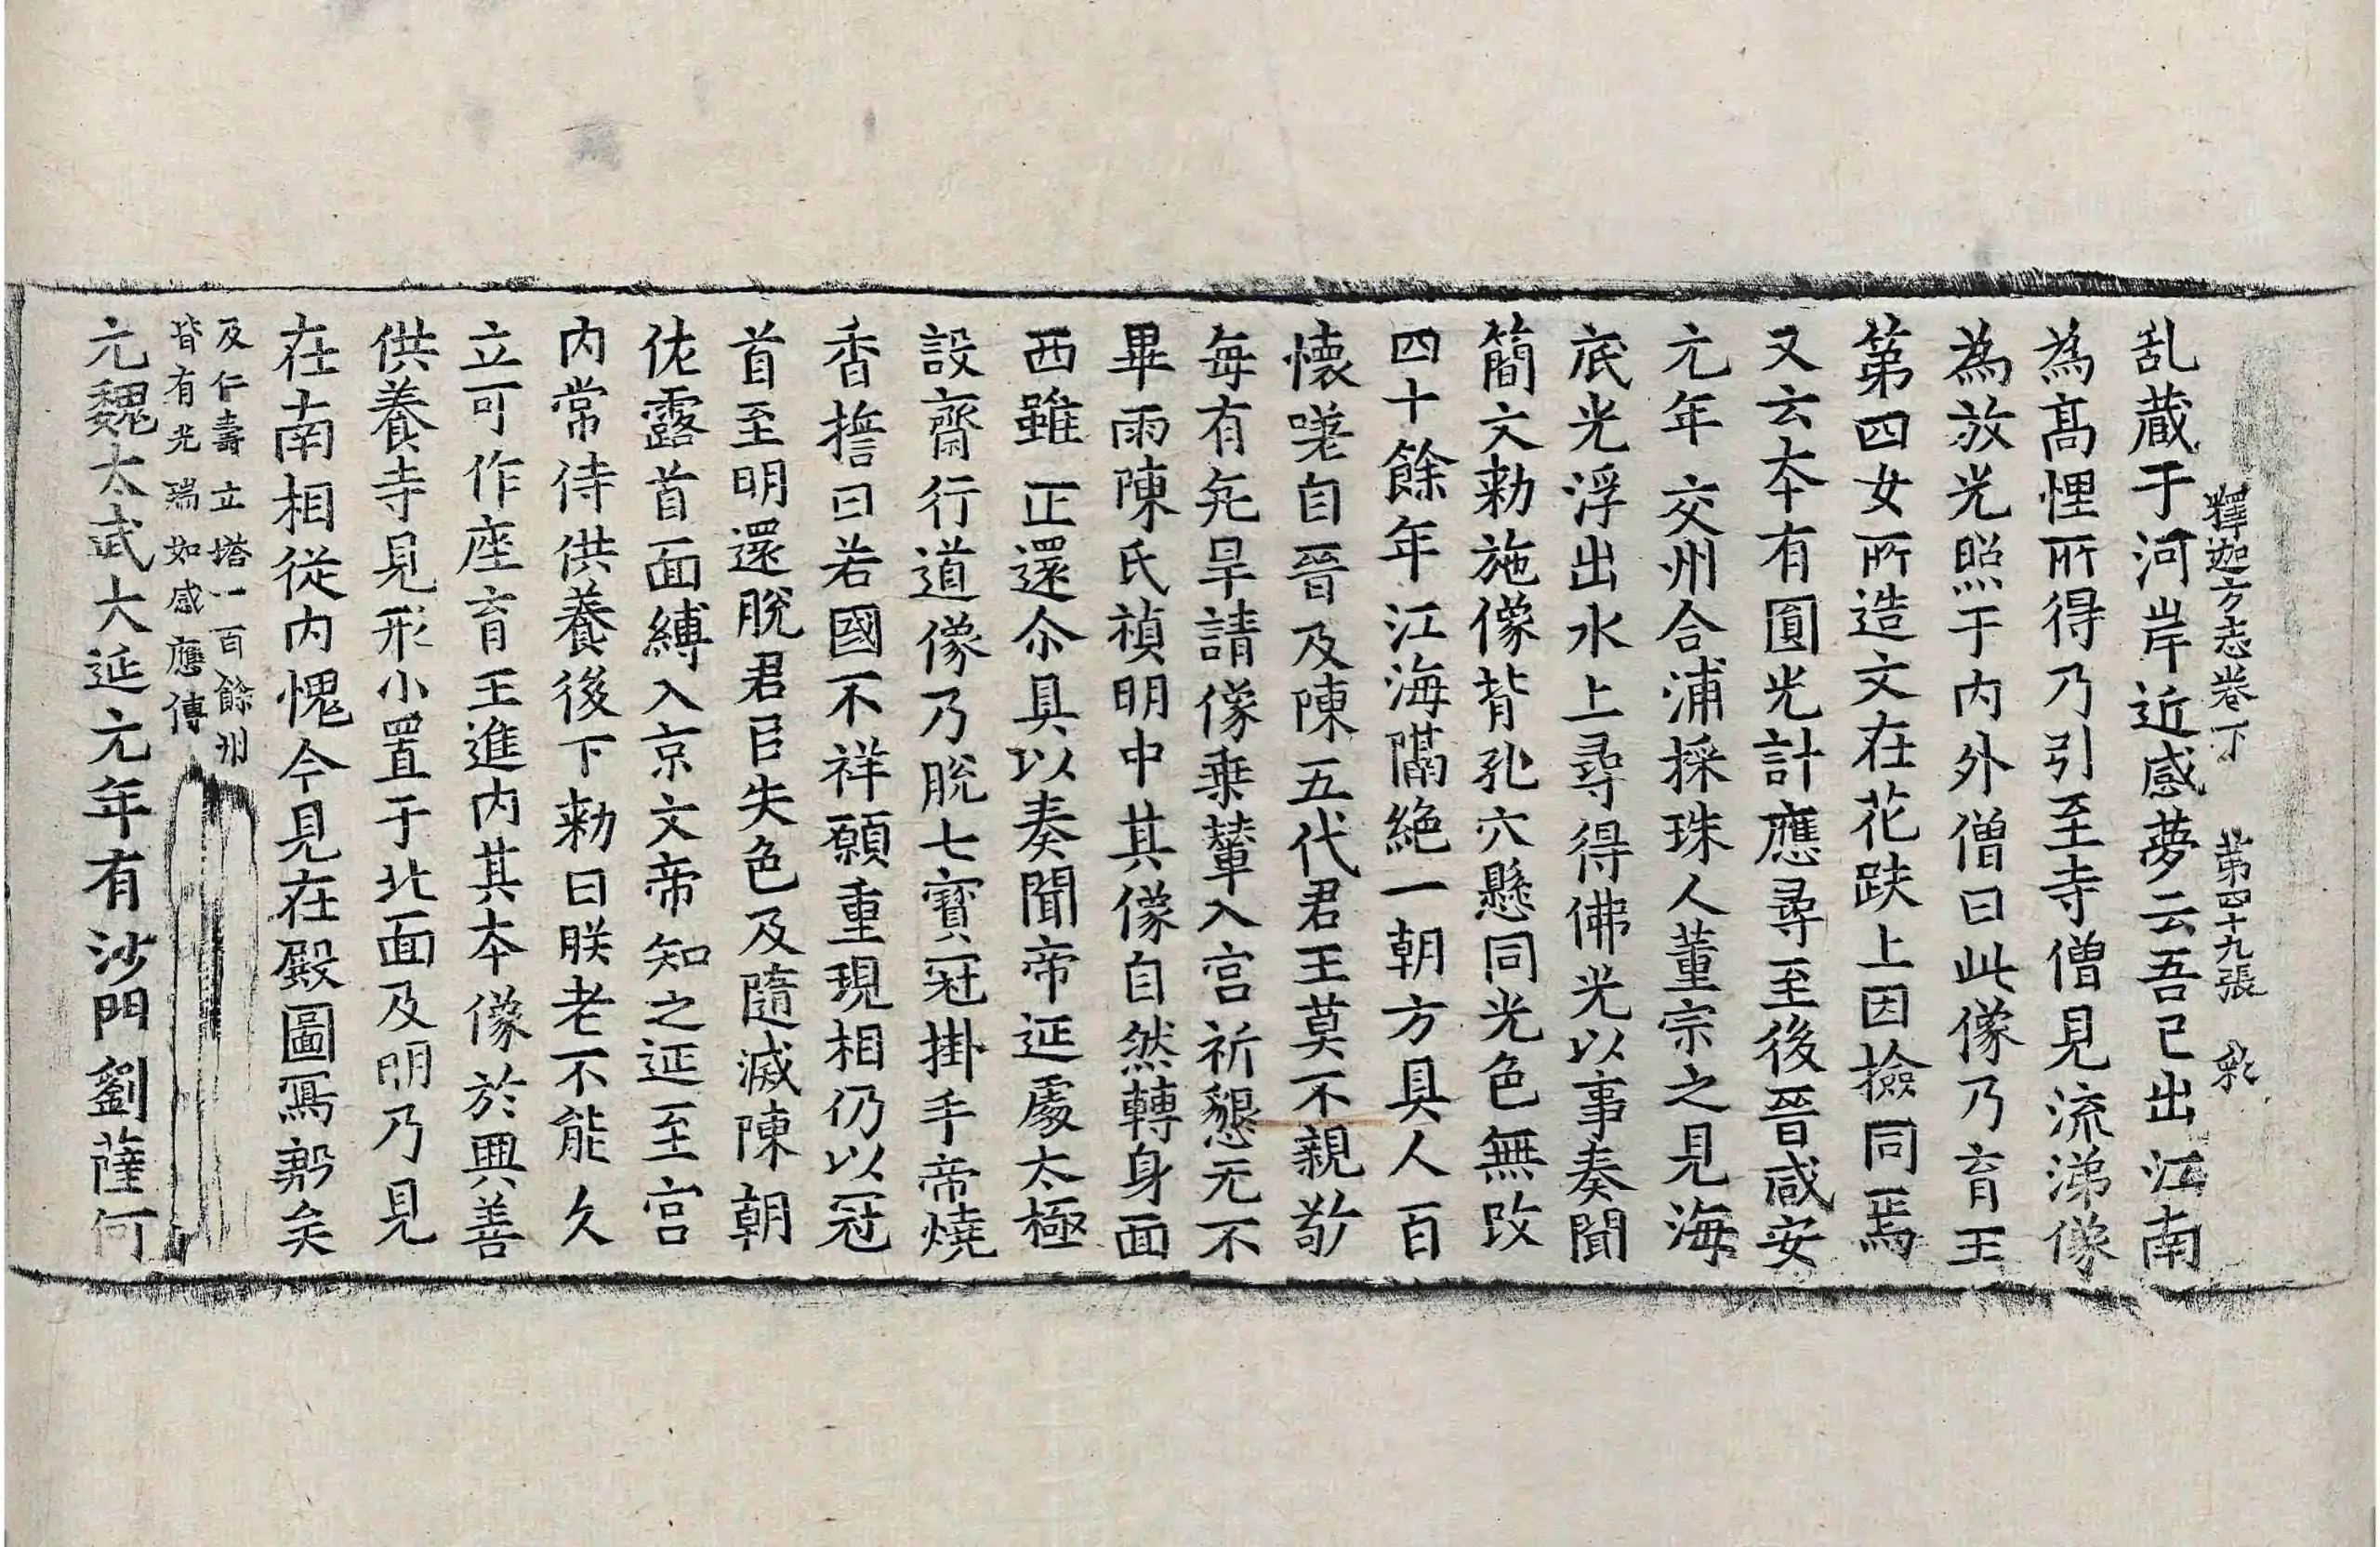 釋迦方志卷下 第四十九張 彩
乱蔵于河岸近感夢云吾已出江南
為髙悝所得乃引至寺僧見流涕像
為放光照于内外僧曰此像乃育王
第四女所造文在花趺上因撿同焉
又云夲有圎光計應尋至後晉咸安
元年交州合浦採珠人董宗之見海
底光浮出水上尋得佛光以事奏聞
簡文勑施像背孔穴懸同光色無改
四十餘年江海隔絶一朝方具人百
懷嘆自晉及陳五代君王莫不親敬
每有亢旱請像乗輦入宫祈懇无不
畢雨陳氏禎明中其像自然轉身面
西雖正還尒具以奏聞帝延處太極
設齋行道像乃脱七寳冠掛手帝燒
香擔曰若國不祥願重現相仍以冠
首至明還脱君臣失色及隨滅陳朝
侂露首面縛入京文帝知之延至宫
内常侍供養後下勑曰朕老不能久
立可作座育王進内其夲像於興善
供養寺見形小置于北面及明乃見
在南相從内愧今見在殿圖寫郣矣
及仁壽立塔一百餘州
皆有光瑞如感應傳
元魏太武大延元年有沙門劉薩何